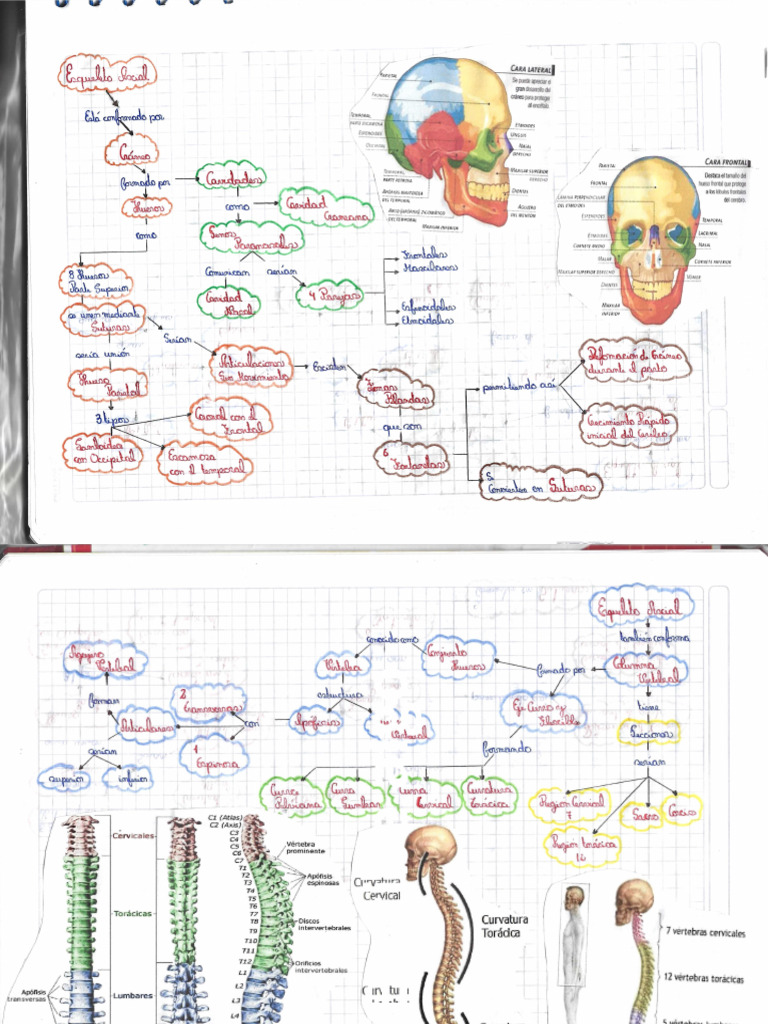 Esqueleto Axial
Está conformado por
Cráneo
formado por
Huesos
como
8 Huesos
Parte Superior
se unen mediante
Suturas
sería unión
Hueso
Parietal
3 tipos
con Occipital
Coronal con el
Frontal
Escamosa
con el temporal
Serían
Articulaciones
Sin Movimiento
Existen
Zonas
Blandas
que son
6
Fontanelas
permitiendo así
Deformación de Cráneo
durante el parto
Crecimiento Rápido
inicial del Cerebro
Se
Convierten en Suturas
Cavidades
como
Cavidad
Craneana
Senos
Paranasales
Comunican
Cavidad
Nasal
serían
4 Parejas
Frontales
Maxilares
Esfenoidales
Etmoidales
CARA LATERAL
Se puede apreciar el
gran desarrollo del
cráneo para proteger
al encéfalo.
PARIETAL
FRONTAL
TEMPORAL
PARTE ESCAMOSA
ESFENOIDES
OCCIPITAL
ETMOIDES
UNGUIS
NASAL
DERECHO
MAXILAR SUPERIOR
DERECHO
DIENTES
AGUJERO
DEL MENTÓN
TEMPORAL
PARTE PETROSA
APÓFISIS MASTOIDEA
DEL TEMPORAL
ARCO CIGOMÁTICO
DEL TEMPORAL
MAXILAR INFERIOR
CARA FRONTAL
Destaca el tamaño del
hueso frontal que protege
a los lóbulos frontales
del cerebro.
PARIETAL
FRONTAL
LÁMINA PERPENDICULAR
DEL ETMOIDES
ESFENOIDES
ETMOIDES
CORNETE MEDIO
MALAR
MAXILAR SUPERIOR DERECHO
DIENTES
MAXILAR
INFERIOR
TEMPORAL
LACRIMAL
NASAL
CORNETE INFERIOR
VÓMER
Esqueleto Axial
también conforma
Columna
Vertebral
formado por
Conjunto
Huesos
conocido como
Vértebra
estructura
Apófisis
Vertebral
con
2
Transversas
1
Espinosa
Articulares
forman
Vertebral
serían
superior
inferior
Eje Curvo y
Flexible
formando
Curva
Pélviana
Curva
Lumbar
Curva
Cervical
Curvatura
Torácica
tiene
Secciones
serían
Región Cervical
7
Región torácica
12
Sacro
Coccix
Cervicales
Torácicas
Lumbares
Apófisis
transversas
C1 (Atlas)
C2 (Axis)
C3
C4
C5
C6
C7
T1
T2
T3
T4
T5
T6
T7
T8
T9
T10
T11
T12
L1
L2
L3
L4
Vértebra
prominente
Apófisis
espinosas
Discos
intervertebrales
Orificios
intervertebrales
Curvatura
Cervical
Curvatura
Torácica
7 vértebras cervicales
12 vértebras torácicas